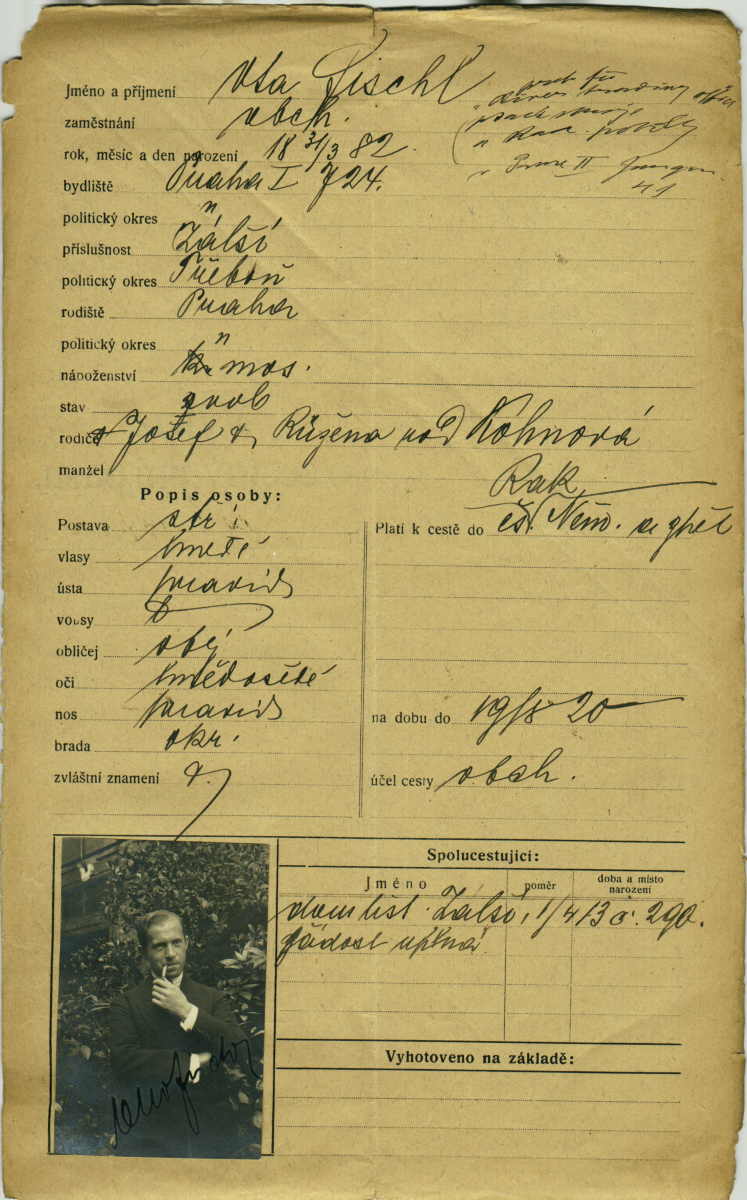 Jméno a příjmení Ota Fischl
zaměstnání obch.
rok, měsíc a den narození 18 31/3 82.
bydliště Praha I 724.
v Praze II
41
politický okres "
příslušnost Zálší
politický okres Třeboň
rodiště Praha
politický okres "
náboženství mos.
stav svob
rodiče Josef & Růžena roz Kohnová
manžel
Popis osoby:
Postava stř.
vlasy hnědé
ústa pravid
vousy
obličej obl
oči hnědošedé
nos pravid
brada okr.
zvláštní znamení
Rak.
Platí k cestě do čs. Něm. a zpět
na dobu do 19/8 20
účel cesty obch.
Spolucestující:
Jméno poměr doba a místo narození
dom list. Zálší, 1/4 13 č. 290.
žádost úplná
Vyhotoveno na základě: